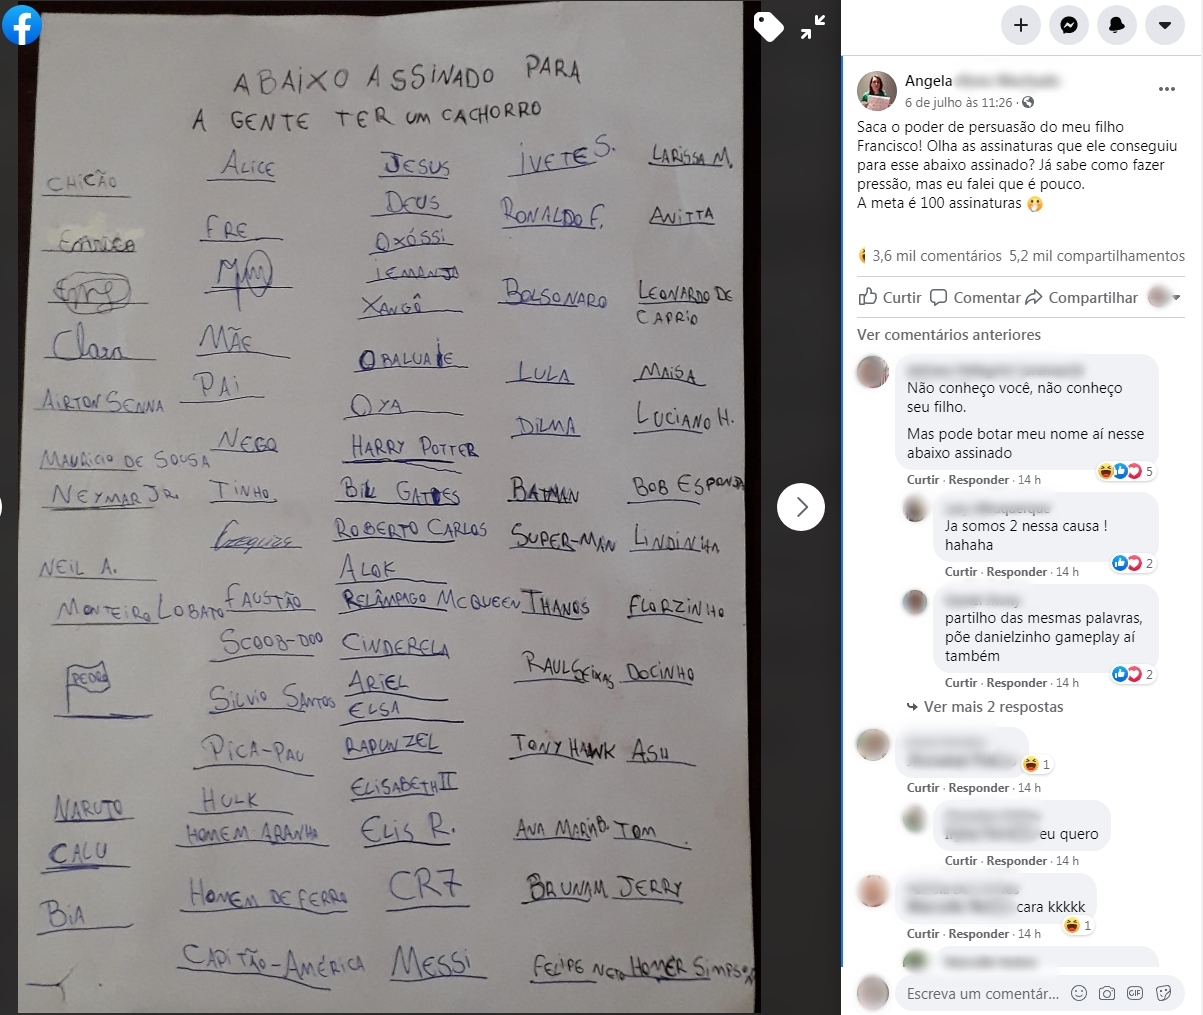 ABAIXO ASSINADO PARA
A GENTE TER UM CACHORRO
CHICÃO
Enrico
Clara
AIRTON SENNA
MAURICIO DE SOUSA
NEYMAR JR.
NEIL A.
MONTEIRO LOBATO
PEDRO
NARUTO
CALU
BIA
ALICE
FRE
MÃE
PAI
NEGO
TINHO
FAUSTÃO
SCOOB-DOO
SILVIO SANTOS
PICA-PAU
HULK
HOMEM ARANHA
HOMEM DE FERRO
CAPITÃO-AMÉRICA
JESUS
DEUS
OXÓSSI
IEMANJA
XANGÔ
OBALUAIE
OYA
HARRY POTTER
BILL GATES
ROBERTO CARLOS
ALOK
RELÂMPAGO MCQUEEN
CINDERELA
ARIEL
ELSA
RAPUNZEL
ELISABETH II
ELIS R.
CR7
MESSI
IVETE S.
RONALDO F.
BOLSONARO
LULA
DILMA
BATMAN
SUPER-MAN
THANOS
RAUL SEIXAS
TONY HAWK
ANA MARIA B.
BRUNAM
FELIPE NETO
LARISSA M.
ANITTA
LEONARDO DE
CAPRIO
MAISA
LUCIANO H.
BOB ESPONJA
LINDINHA
FLORZINHO
DOCINHO
ASH
TOM
JERRY
HOMER SIMPSON
Angela
6 de julho às 11:26 ·
Saca o poder de persuasão do meu filho
Francisco! Olha as assinaturas que ele conseguiu
para esse abaixo assinado? Já sabe como fazer
pressão, mas eu falei que é pouco.
A meta é 100 assinaturas 🤭
3,6 mil comentários 5,2 mil compartilhamentos
Curtir Comentar Compartilhar
Ver comentários anteriores
Não conheço você, não conheço
seu filho.
Mas pode botar meu nome aí nesse
abaixo assinado
5
Curtir · Responder · 14 h
Ja somos 2 nessa causa !
hahaha
2
Curtir · Responder · 14 h
partilho das mesmas palavras,
põe danielzinho gameplay aí
também
2
Curtir · Responder · 14 h
Ver mais 2 respostas
1
Curtir · Responder · 14 h
eu quero
Curtir · Responder · 14 h
cara kkkkk
1
Curtir · Responder · 14 h
Escreva um comentár...
GIF